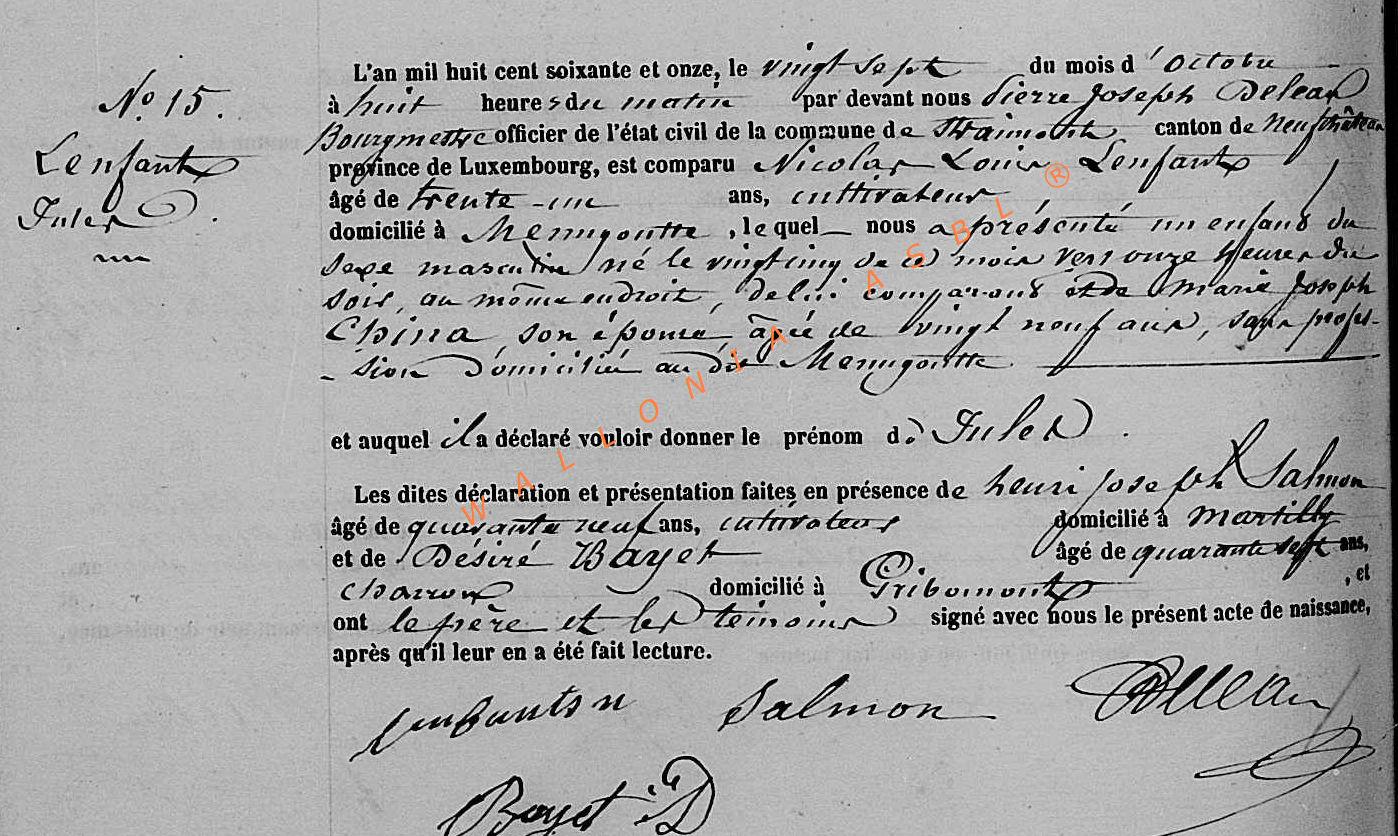 N.o 15.
Lenfant
Jules
L'an mil huit cent soixante et onze, le vingt sept du mois d'octobre
à huit heures du matin par devant nous Pierre Joseph Deleau
Bourgmestre officier de l'état civil de la commune de Straimont canton de Neufchâteau
province de Luxembourg, est comparu Nicolas Louis Lenfant
âgé de trente-un ans, cultivateur
domicilié à Menugoutte, lequel nous a présenté un enfant du
sexe masculin né le vingt cinq de ce mois vers onze heures du
soir, au même endroit, de lui comparant et de Marie Joseph
China, son épouse, âgée de vingt neuf ans, sans profes-
sion domiciliée au dit Menugoutte
et auquel il a déclaré vouloir donner le prénom de Jules.
Les dites déclaration et présentation faites en présence de henri joseph Salmon
âgé de quarante neuf ans, cultivateur domicilié à Martilly
et de Désiré Bayet âgé de quarante sept ans,
charron domicilié à Gribomont, et
ont le père et les témoins signé avec nous le présent acte de naissance,
après qu'il leur en a été fait lecture.
Salmon Deleau
Bayet D
WALLONIA ASBL ®